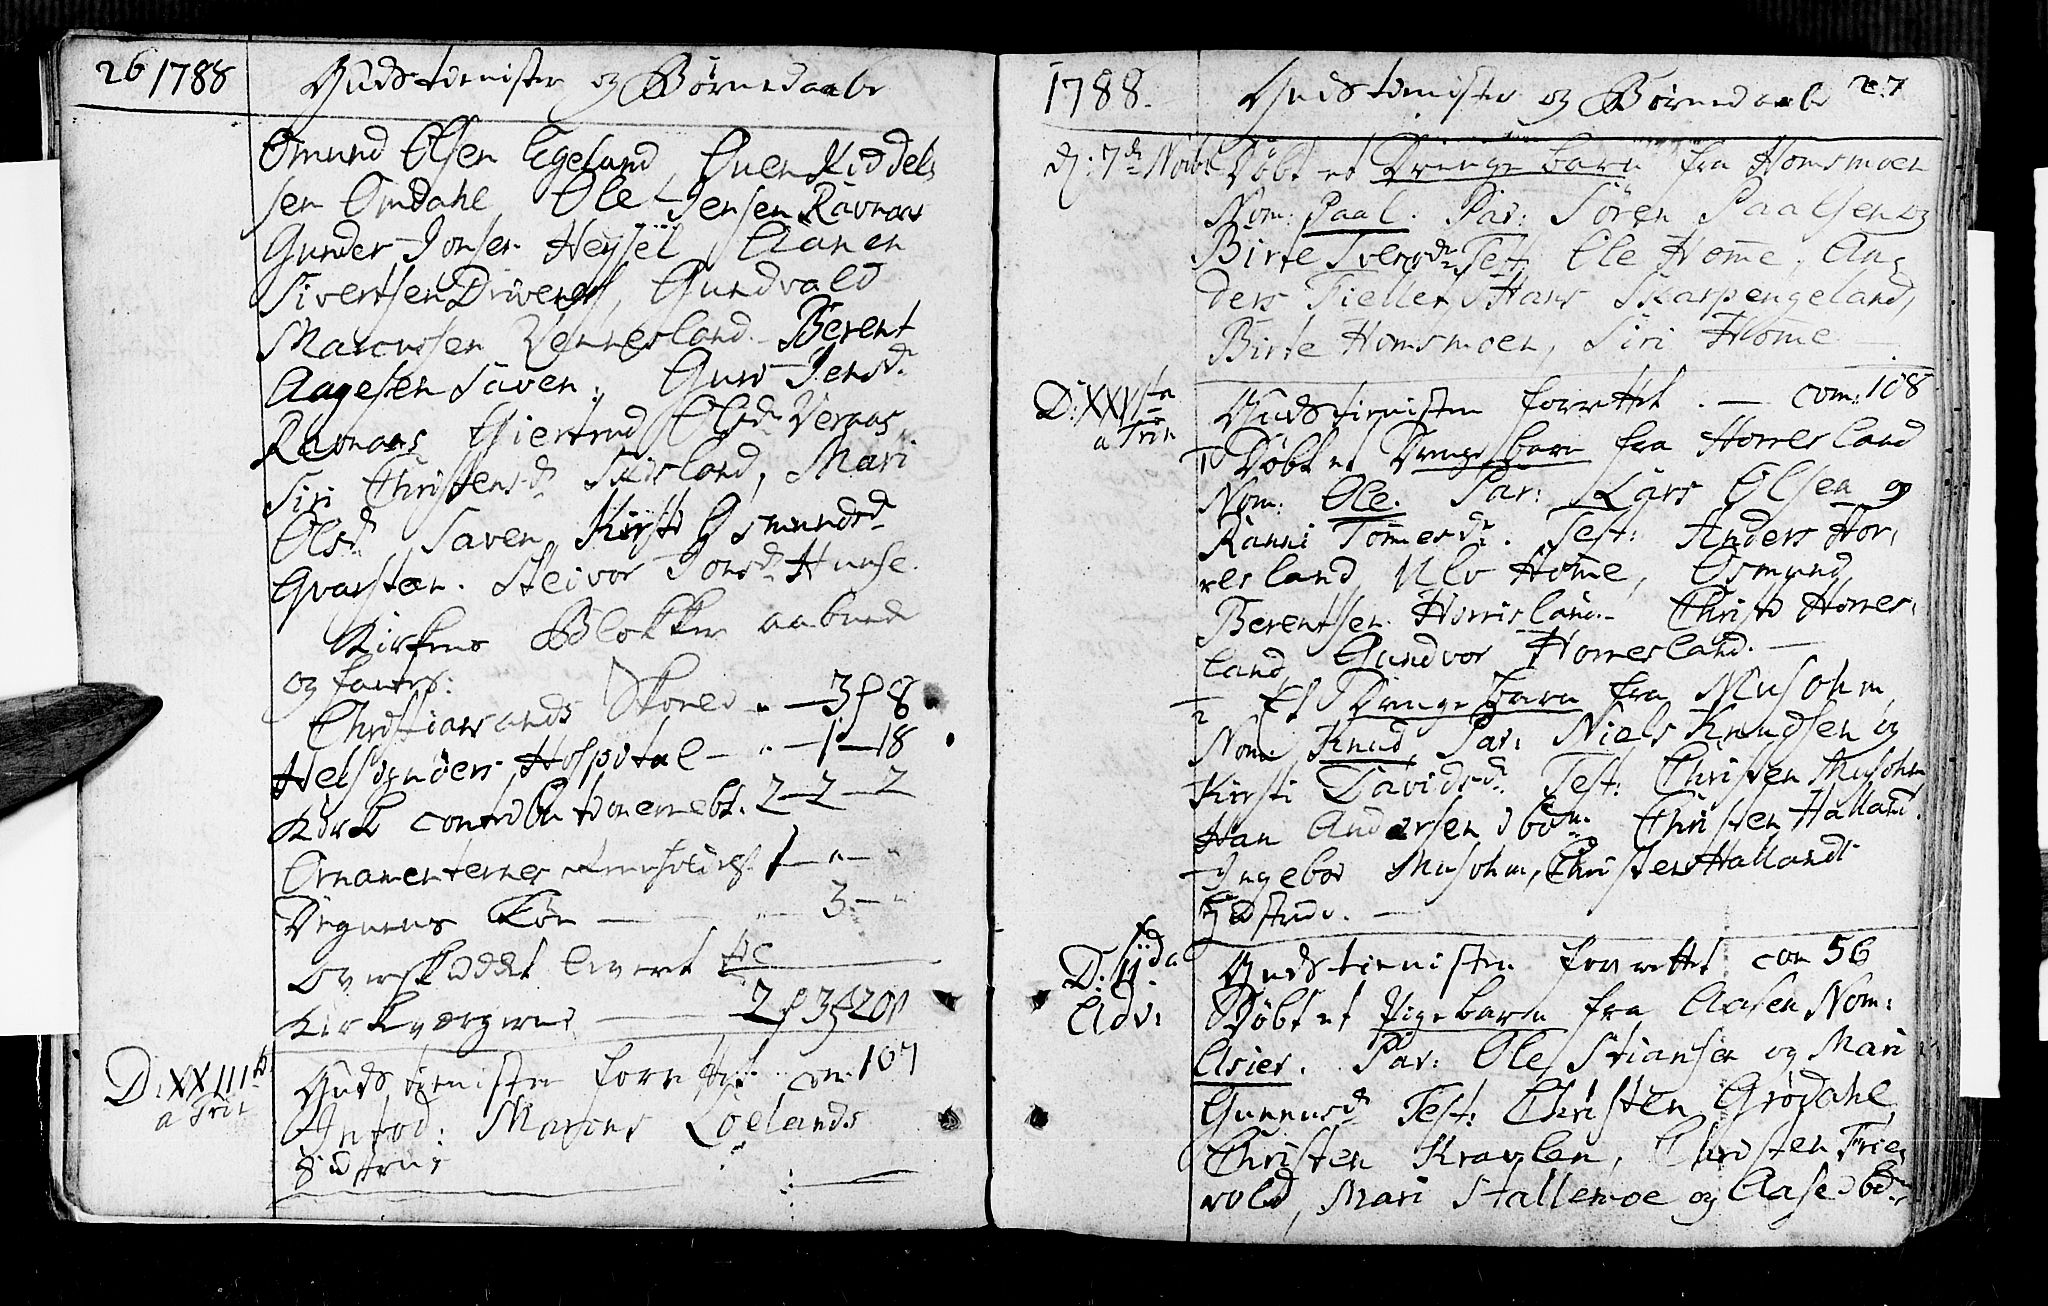 26 1788 Gudstienister og Børnedaabe
Omund Olsen Egeland, Ouen Kiddels
sen Omdahl Ole Jensen Ravnaas
Gunder Jonsen Heysel, Aanen
Sivertsen Drivenes, Gundvald
Marcussen Vennesland. Berent
Aagesen Saven. Guro Jensdr
Ravnaas Giertrud Olsdr Veraas,
Siri Christensdr Skisland, Mari
Olsdr Saven Kirsti Osmundsdr
Qvarsten. Steivor Jonsdr Hunse.
Kirkens Blokker aabnede
og fantes:
Christiansands Skoled " — 3 f 8
Helsingøers Hospital — " — 1 — 18
Kirke contributionernebt. 2 — 2 — 2
Ornamenternes 1 — " — "
Degnens Løn — " — 3 — "
Overskuddet levert
Kirkeværgerne — 2 f 3 f 20
D: XXIII
a Trin
Gudstienisten forrettet con. 107
Introd: Marcus Loelands
Hustrue
1788. Gudstienister og Børnedaabe 27
d: 7de Novbr Døbt et Drengebarn fra Homsmoen
Nom: Paal. Par: Sören Paalsen og
Birte Iversdr Test Ole Home, An-
ders Fieller, Hans Skarpengeland,
Birte Homsmoen, Siri Home —
D: XXV
a Trin
Gudstienisten forrettet. — com: 108
1 Døbt et Drengebarn fra Horresland
Nom: Ole. Par: Lars Olsen og
Ranni Tomesdr. Test: Anders Hor-
resland, Ulv Home, Osmund
Berentsen Horrisland. — Christi Horres-
land, Gundvor Horresland. —
2 Et Drengebarn fra Musohm,
Nom: Knud Par: Niels Knudsen og
Kirsti Davidsdr. Test: Christen Musohm
Han Andersen ibdm. Christen Halland.
Ingebor Musohm, Christen Hallands
Hustrue. —
D: IIda
Adv:
Gudstienisten forrettet con 56
Døbt et Pigebarn fra Aasen Nom:
Asier. Par: Ole Stiansen og Mari
Gunnusdr Test: Christen Grødahl,
Christen Kravlen, Christen Trie-
vold, Mari Stallemoe og Aase ibdm